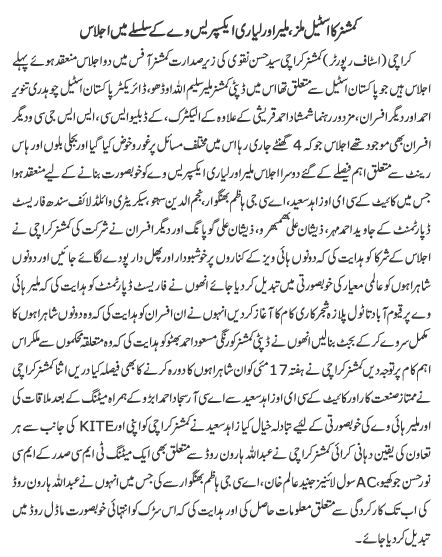 کمشنر کا اسٹیل ملز، ملیر اور لیاری ایکسپریس وے کے سلسلے میں اجلاس
کراچی (اسٹاف رپورٹر) کمشنر کراچی سید حسن نقوی کی زیر صدارت کمشنر آفس میں دو اجلاس منعقد ہوئے پہلے
اجلاس میں جو پاکستان اسٹیل سے متعلق تھا اس میں ڈپٹی کمشنر ملیر سلیم اللہ اوڈھو، ڈائریکٹر پاکستان اسٹیل چوہدری تنویر
احمد اور دیگر افسران، مزدور رہنما شمشاد احمد قریشی کے علاوہ کے الیکٹرک، کے ڈبلیو ایس سی، ایس ایس جی سی و دیگر
افسران بھی موجود تھے اجلاس جو کہ 4 گھنٹے جاری رہا اس میں مختلف مسائل پر غور و خوض کیا گیا اور بجلی بلوں اور ہاس
رینٹ سے متعلق اہم فیصلے کے گئے دوسرا اجلاس ملیر اور لیاری ایکسپریس وے کو خوبصورت بنانے کے لیے منعقد ہوا
جس میں کائیٹ کے سی ای او زاہد سعید، اے سی جی ہاظم بھنگوار، نجم الدین سہتو، سیکریٹری وائلڈ لائف سندھ فاریسٹ
ڈپارٹمنٹ کے جاوید احمد مہر، ذیشان علی بھمبھرو، ذیشان علی گوپانگ اور دیگر افسران نے شرکت کی کمشنر کراچی نے
اجلاس کے شرکا کو ہدایت کی کہ دونوں ہائی ویز کے کناروں پر خوشبودار اور پھل دار پودے لگائے جائیں اور دونوں
شاہراہوں کو عالمی معیار کی خوبصورتی میں تبدیل کر دیا جائے انھوں نے فاریسٹ ڈپارٹمنٹ کو ہدایت کی کہ ملیر ہائی
وے پر قیوم آباد تا ٹول پلازہ شجر کاری کام کا آغاز کر دیں انہوں نے ان افسران کو ہدایت کی کہ وہ دونوں شاہراہوں کا
مکمل سروے کر کے بجٹ بنالیں انھوں نے ڈپٹی کمشنر کورنگی مسعود احمد بھٹو کو ہدایت کی کہ وہ متعلقہ محکموں سے ملکر اس
اہم کام پر توجہ دیں کمشنر کراچی نے ہفتہ 17 مئی کو ان شاہراہوں کا دورہ کرنے کا بھی فیصلہ کیا دریں اثنا کمشنر کراچی
نے ممتاز صنعت کار اور کائیٹ کے سی ای او زاہد سعید سے اے سی آر سجاد احمد ابڑو کے ہمراہ میٹنگ کے بعد ملاقات کی
اور ملیر ہائی وے کی خوبصورتی کے لیے تبادلہ خیال کیا زاہد سعید نے کمشنر کراچی کو اپنی اور KITE کی جانب سے ہر
تعاون کی یقین دہانی کرائی کمشنر کراچی نے عبداللہ ہارون روڈ سے متعلق بھی ایک میٹنگ ٹی ایم سی صدر کے ایم سی
نور حسن جوکھیو، AC سول لائنیز جنید عالم خان، اے سی جی ہاظم بھنگوار سے کی جس میں انہوں نے عبداللہ ہارون روڈ
کی اب تک کارکردگی سے متعلق معلومات حاصل کی اور ہدایت کی کہ اس سڑک کو انتہائی خوبصورت ماڈل روڈ میں
تبدیل کر دیا جائے۔